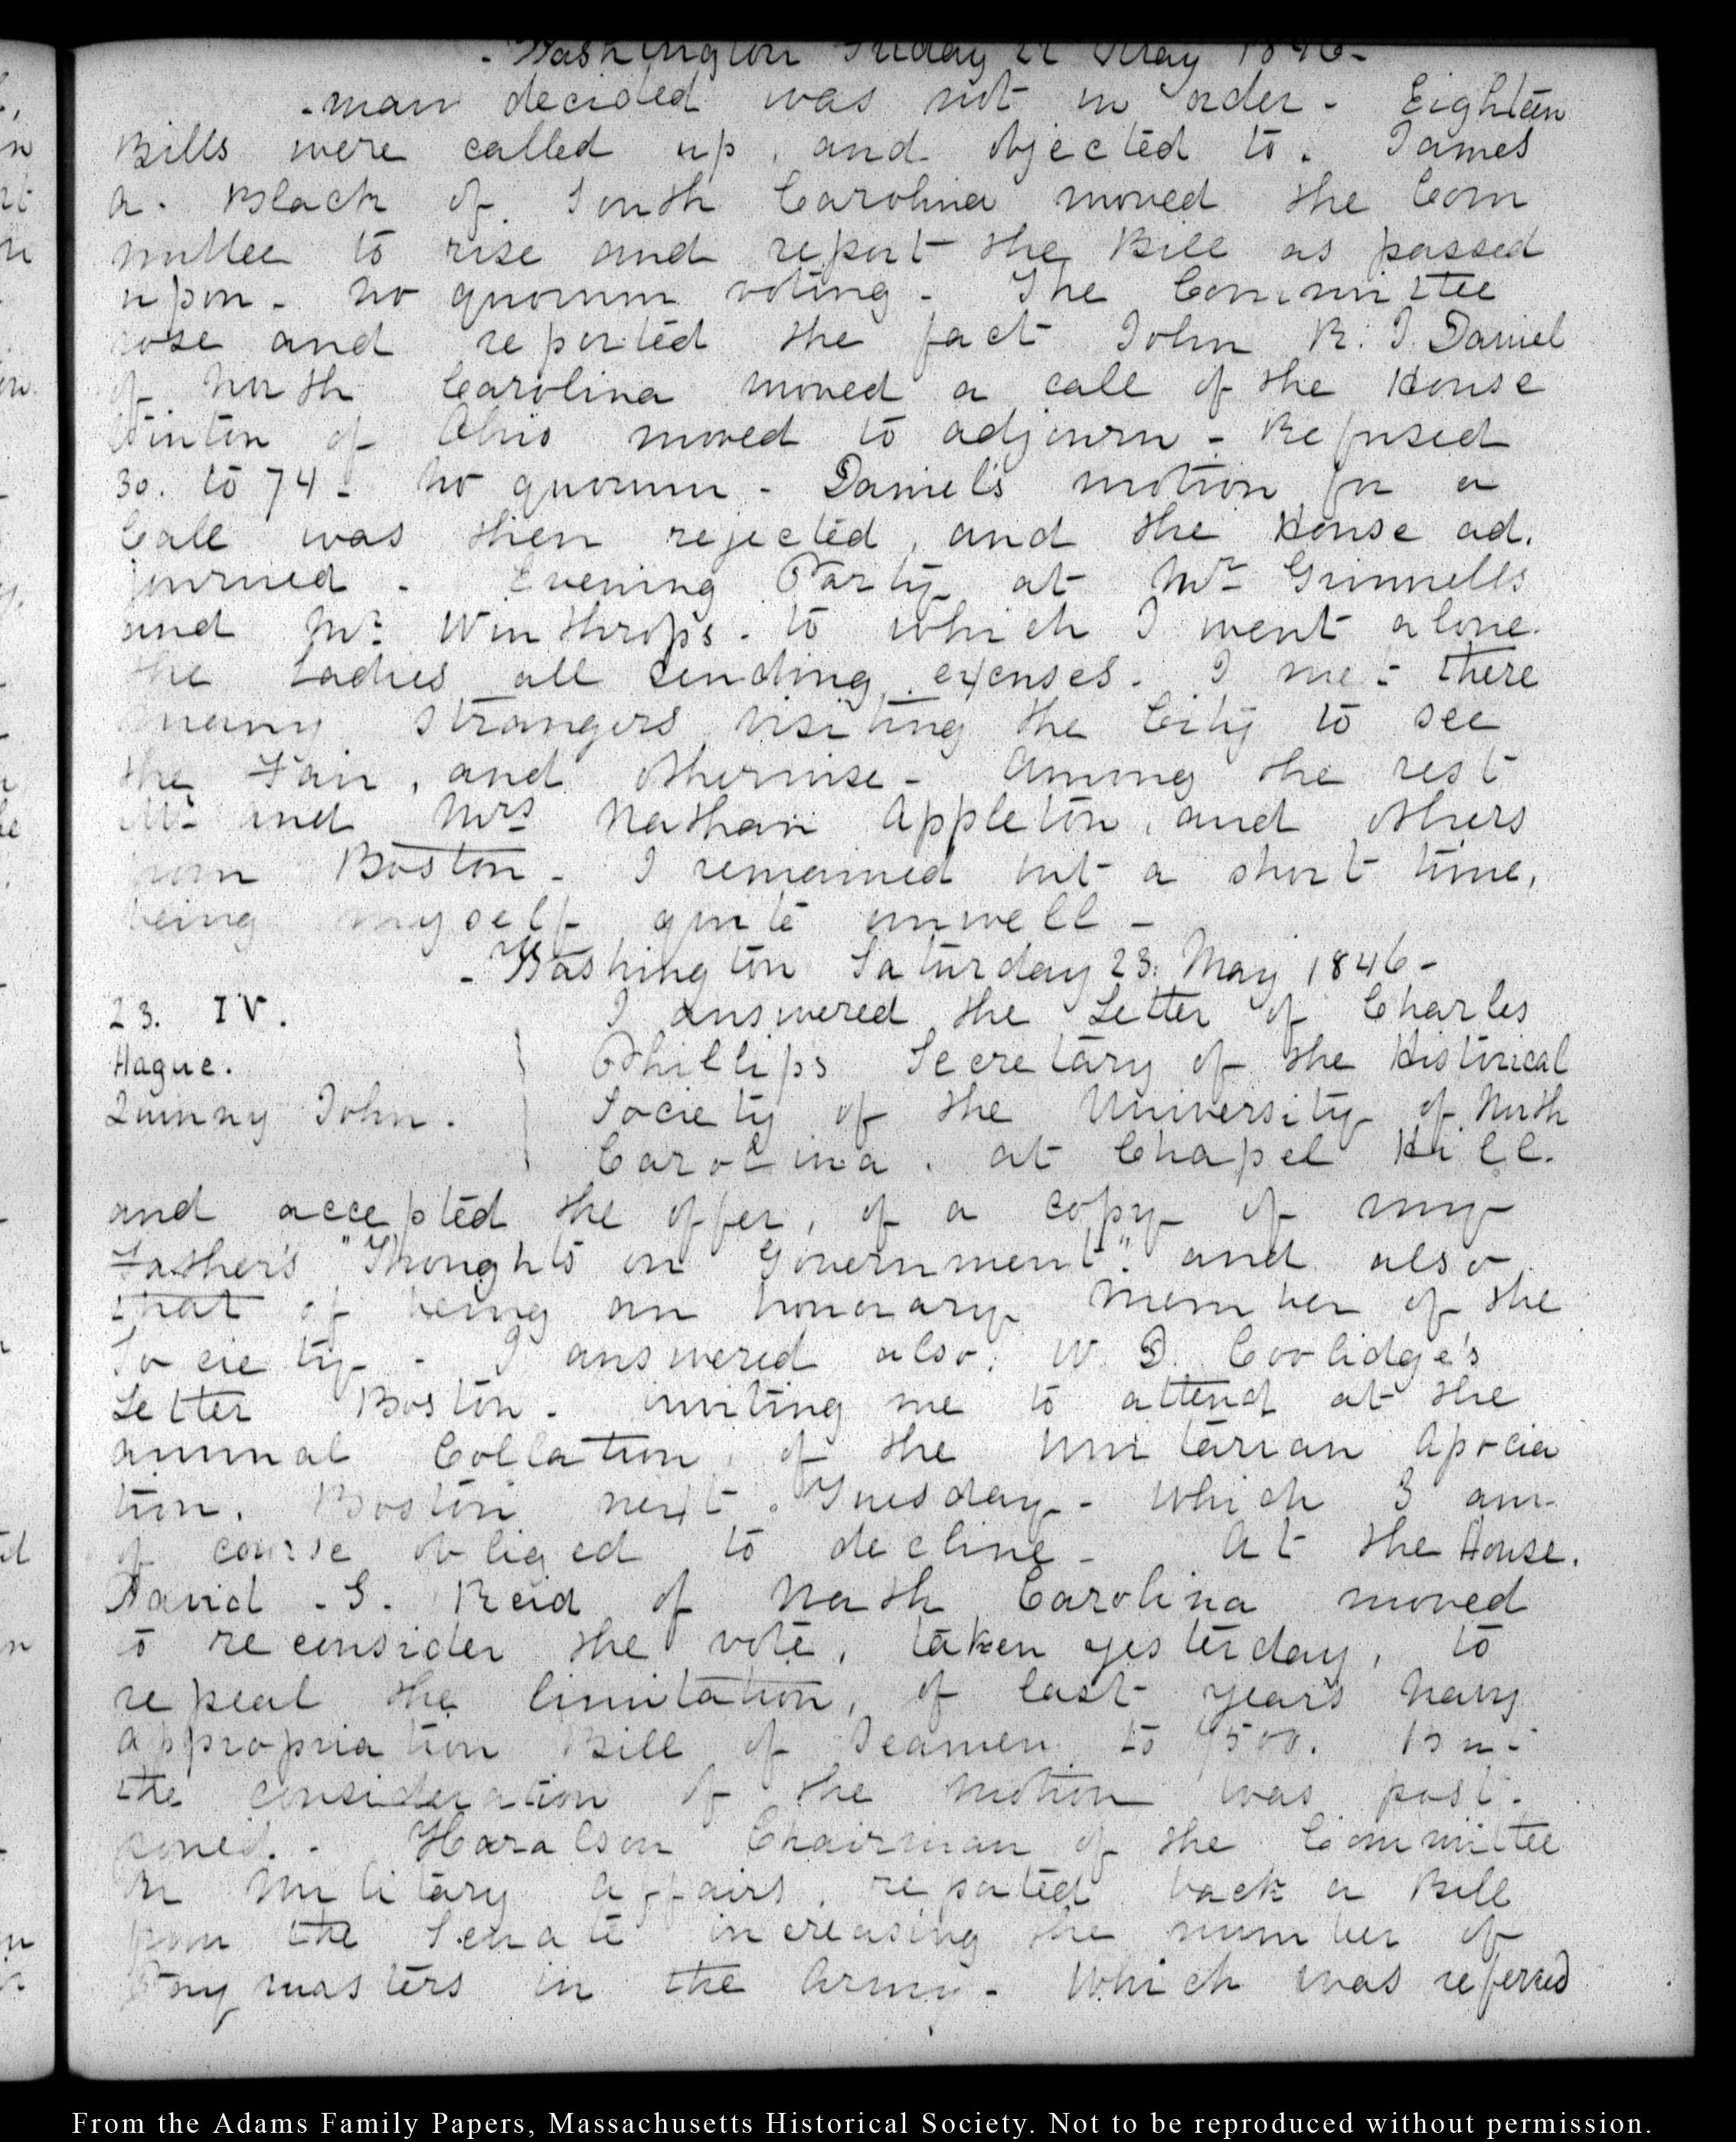 - Washington Friday 22 May 1846 -
-man decided was not in order - Eighteen
Bills were called up, and objected to. James
A. Black of South Carolina moved the Com
mittee to rise and report the Bill as passed
upon - No quorum voting - The Committee
rose and reported the fact John R. J. Daniel
of North Carolina moved a call of the House
Vinton of Ohio moved to adjourn - Refused
30. to 74 - No quorum - Daniel's motion for a
Call was then rejected, and the House ad.
journed - Evening Party at Mr Grinnells
and Mr Winthrop's - to which I went alone.
the Ladies all sending excuses. I met there
many strangers visiting the City to see
the Fair, and otherwise - Among the rest
Mr and Mrs Nathan Appleton, and others
from Boston - I remained but a short time,
being myself quite unwell -
- Washington Saturday 23. May 1846 -
23. IV. I answered the Letter of Charles
Hague. Phillips Secretary of the Historical
Quinny John. Society of the University of North
Carolina, at Chapel Hill.
and accepted the offer, of a copy of my
Father's "Thoughts on Government." and also
that of being an honorary Member of the
Society - I answered also, W. D. Coolidge's
Letter Boston - inviting me to attend at the
annual Collation, of the Unitarian Associa
tion, Boston next Tuesday - which I am
of course obliged to decline - At the House.
David S. Reid of North Carolina moved
to reconsider the vote, taken yesterday, to
repeal the limitation, of last years Navy
appropriation Bill of Seamen to 7500. But
the consideration of the motion was post.
poned. - Haralson Chairman of the Committee
on Military Affairs, reported back a Bill
from the Senate increasing the number of
Paymasters in the Army - Which was referred
From the Adams Family Papers, Massachusetts Historical Society. Not to be reproduced without permission.